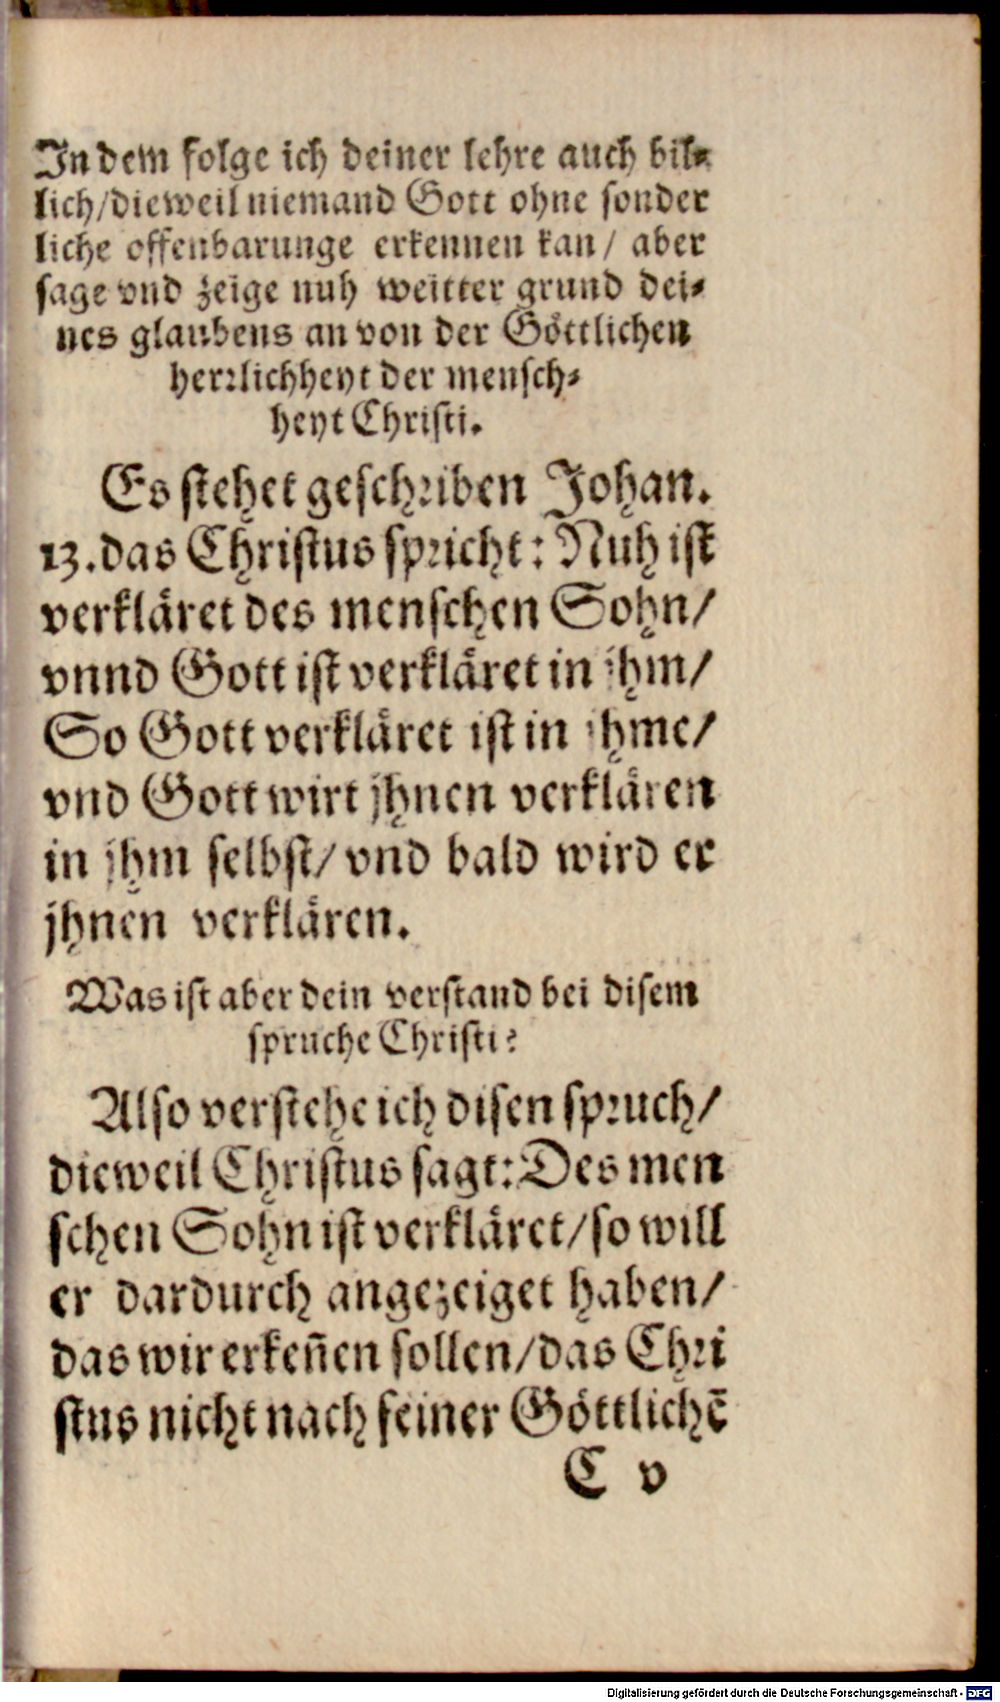 In dem folge ich deiner lehre auch bil⸗
lich/dieweil niemand Gott ohne sonder
liche offenbarunge erkennen kan/ aber
sage vnd zeige nuh weitter grund dei⸗
nes glaubens an von der Göttlichen
herrlichheyt der mensch⸗
heyt Christi.
Es stehet geschriben Johan.
13. das Christus spricht: Nuh ist
verkläret des menschen Sohn/
vnnd Gott ist verkläret in jhm/
So Gott verkläret ist in jhme/
vnd Gott wirt jhnen verklären
in jhm selbst/ vnd bald wird er
jhnen verklären.
Was ist aber dein verstand bei disem
spruche Christi?
Also verstehe ich disen spruch/
dieweil Christus sagt: Des men
schen Sohn ist verkläret/so will
er dardurch angezeiget haben/
das wir erkeñen sollen/das Chri
stus nicht nach seiner Göttlichẽ
C v
Digitalisierung gefördert durch die Deutsche Forschungsgemeinschaft - DFG